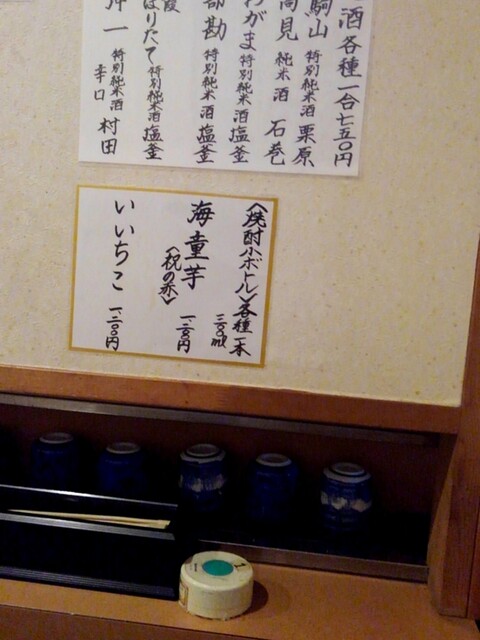 酒各種一合七五〇円
駒山 特別純米酒 栗原
高見 純米酒 石巻
わがま 特別純米酒 塩釜
部勘 特別純米酒 塩釜
霞
はりたて 特別純米酒 塩釜
一 特別純米酒 辛口 村田
〈焼酎小ボトル〉各種一本
三〇〇ml
海童芋 一、二〇〇円
〈祝の赤〉
いいちこ 一、二〇〇円